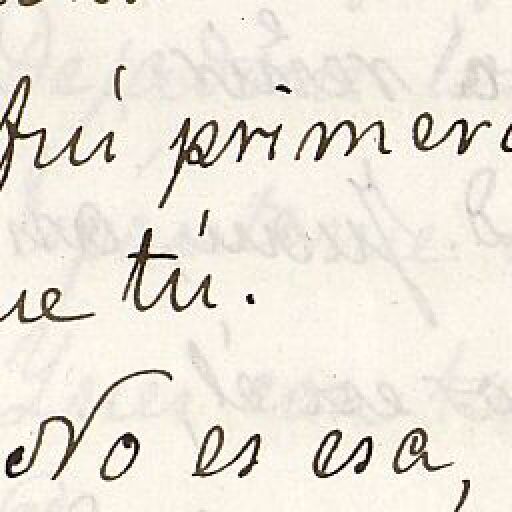 fuí primero
ue tú.
No es esa,